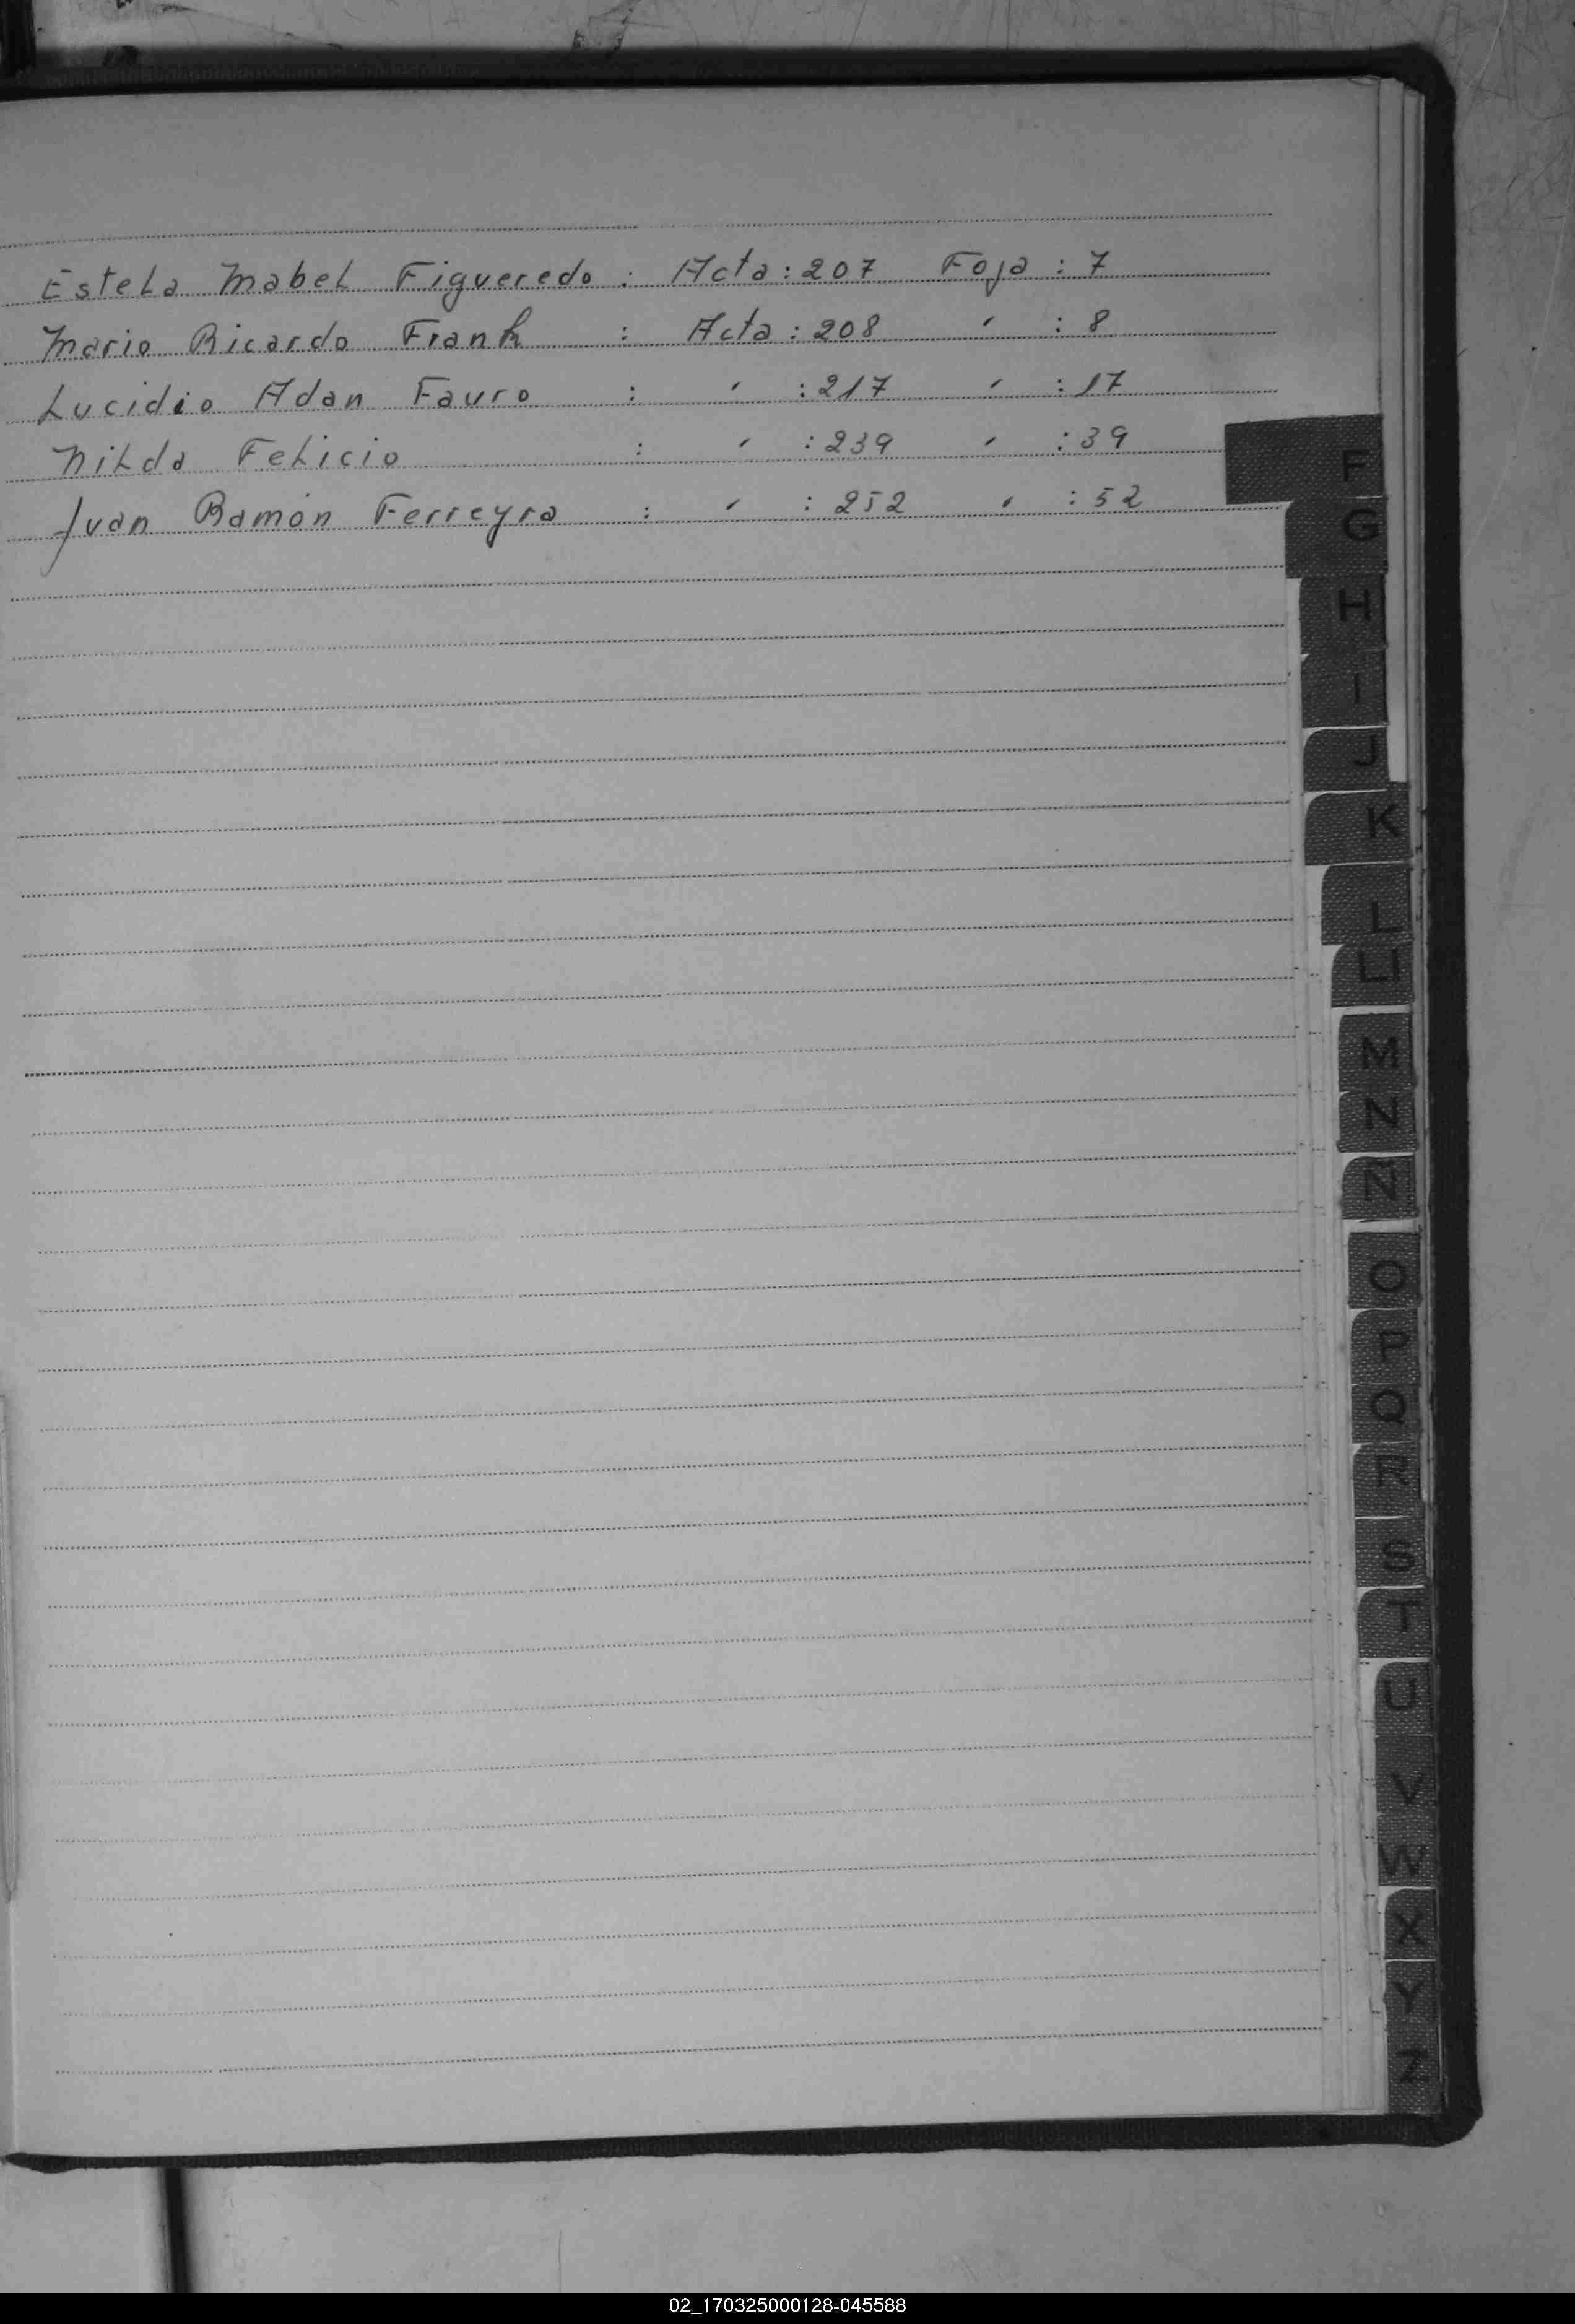 Estela Mabel Figueredo : Acta : 207 Foja : 7
Mario Ricardo Frank : Acta : 208 " : 8
Lucidio Adan Fauro : " : 217 " : 17
Nilda Felicio : " : 239 " : 39
Juan Ramón Ferreyra : " : 252 " : 52
F
G
H
I
J
K
L
LL
M
N
Ñ
O
P
Q
R
S
T
U
V
W
X
Y
Z
02_170325000128-045588